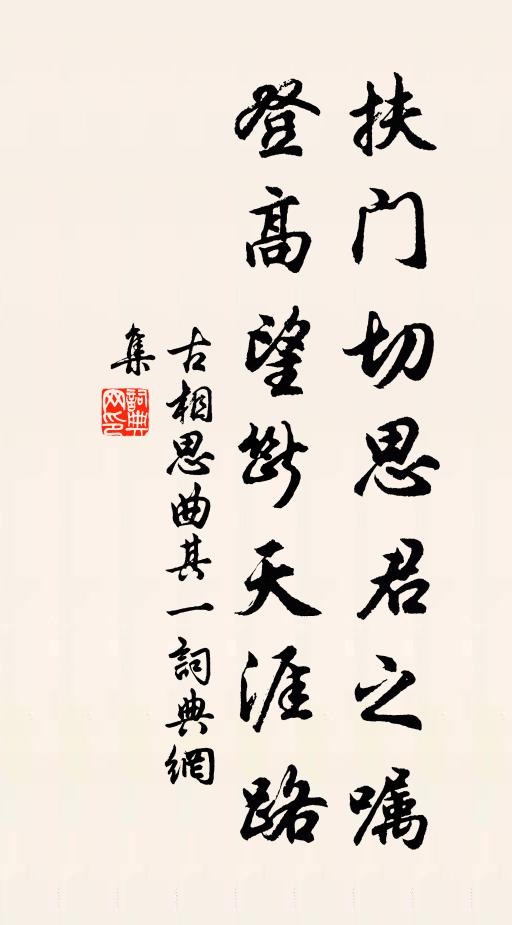 扶门切思君之嘱
登高望断天涯路
古相思曲其一詞典網
集
詞典网印